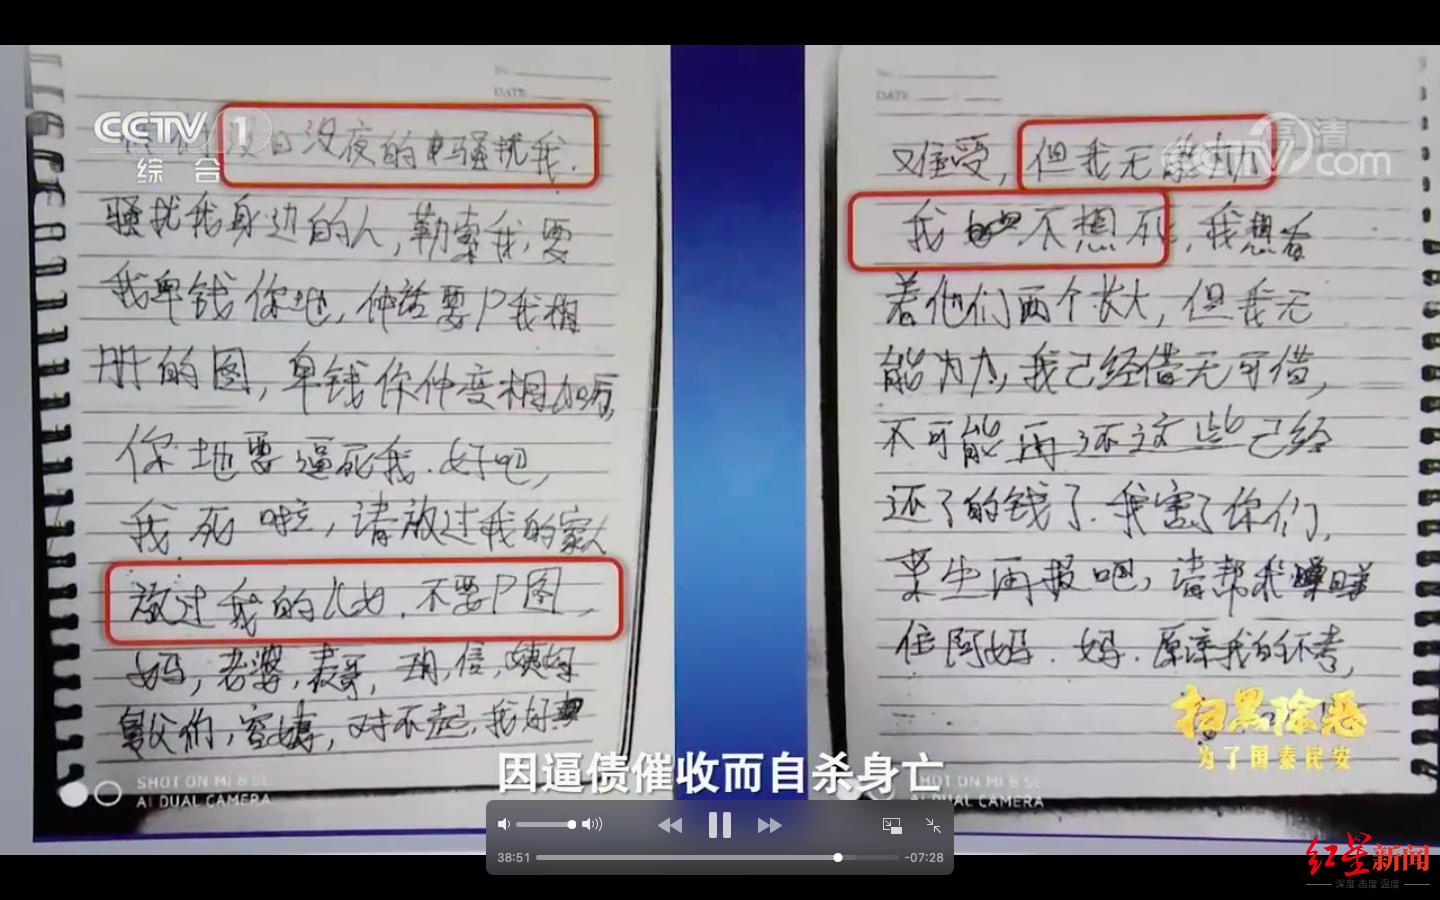 No.
DATE
CCTV 1
综合
没日没夜的骚扰我.
骚扰我身边的人,勒索我,要
我卑钱你地,仲话要P我相
册的图,卑钱你仲变相加厉,
你地要逼死我.好吧,
我死啦,请放过我的家人
放过我的儿女.不要P图,
妈,老婆,表哥,
舅父们,对不起,我好
SHOT ON MI 8 SE
AI DUAL CAMERA
DATE
难受,但我无能为力
我不想死,我想看
着他们两个长大,但我无
能为力,我已经借无可借,
不可能再还这些已经
还了的钱了.我害了你们,
来生再报吧,请帮我
住阿妈.妈.原谅我的不孝,
高清
cctv.com
扫黑除恶
为了国泰民安
SHOT ON MI 8 SE
AI DUAL CAMERA
因逼债催收而自杀身亡
38:51
-07:28
红星新闻
深度 态度 温度